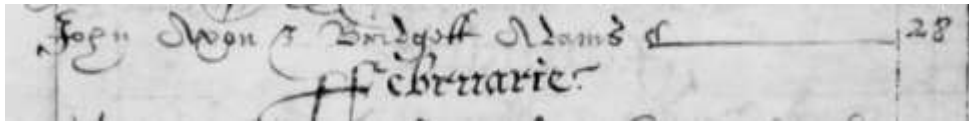 John Axon & Bridgett Adams 28
ffebruarie: